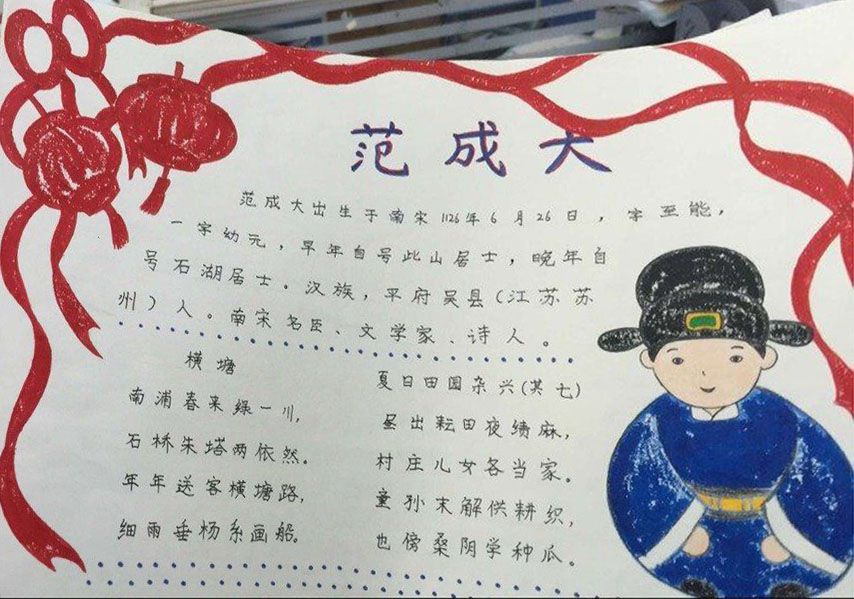 范成大
范成大出生于南宋1126年6月26日，字至能，
一字幼元，早年自号此山居士，晚年自
号石湖居士。汉族，平府吴县（江苏苏
州）人。南宋名臣、文学家、诗人。
横塘
南浦春来绿一川，
石桥朱塔两依然。
年年送客横塘路，
细雨垂杨系画船。
夏日田园杂兴（其七）
昼出耘田夜绩麻，
村庄儿女各当家。
童孙未解供耕织，
也傍桑阴学种瓜。